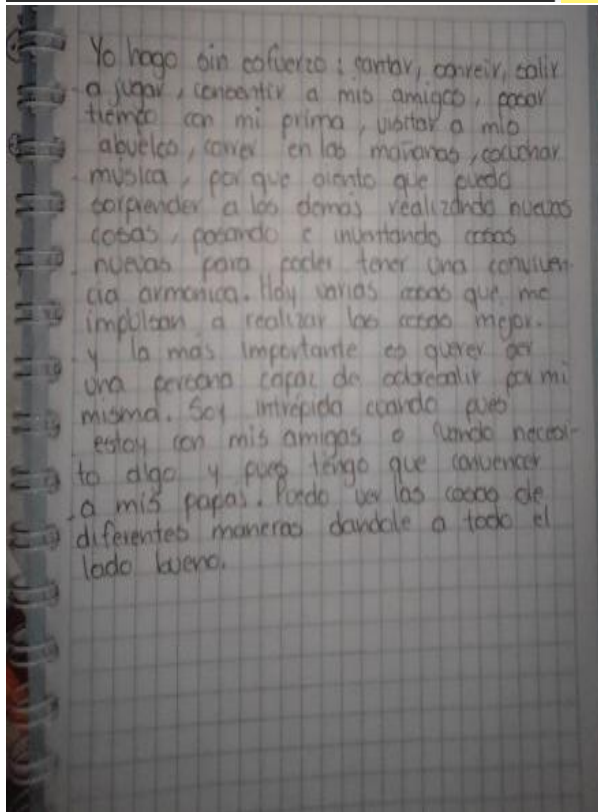 Yo hago sin esfuerzo: cantar, sonreir, salir
a jugar, consentir a mis amigos, pasar
tiempo con mi prima, visitar a mis
abuelos, correr en las mañanas, escuchar
musica, por que siento que puedo
sorprender a los demas realizando nuevas
cosas, pasando e inventando cosas
nuevas para poder tener una conviven-
cia armonica. Hay varias cosas que me
impulsan a realizar las cosas mejor.
y la mas importante es querer ser
una persona capaz de sobresalir por mi
misma. Soy intrepida cuando pues
estoy con mis amigas o cuando necesi-
to algo y pues tengo que convencer
a mis papas. Puedo ver las cosas de
diferentes maneras dandole a todo el
lado bueno.